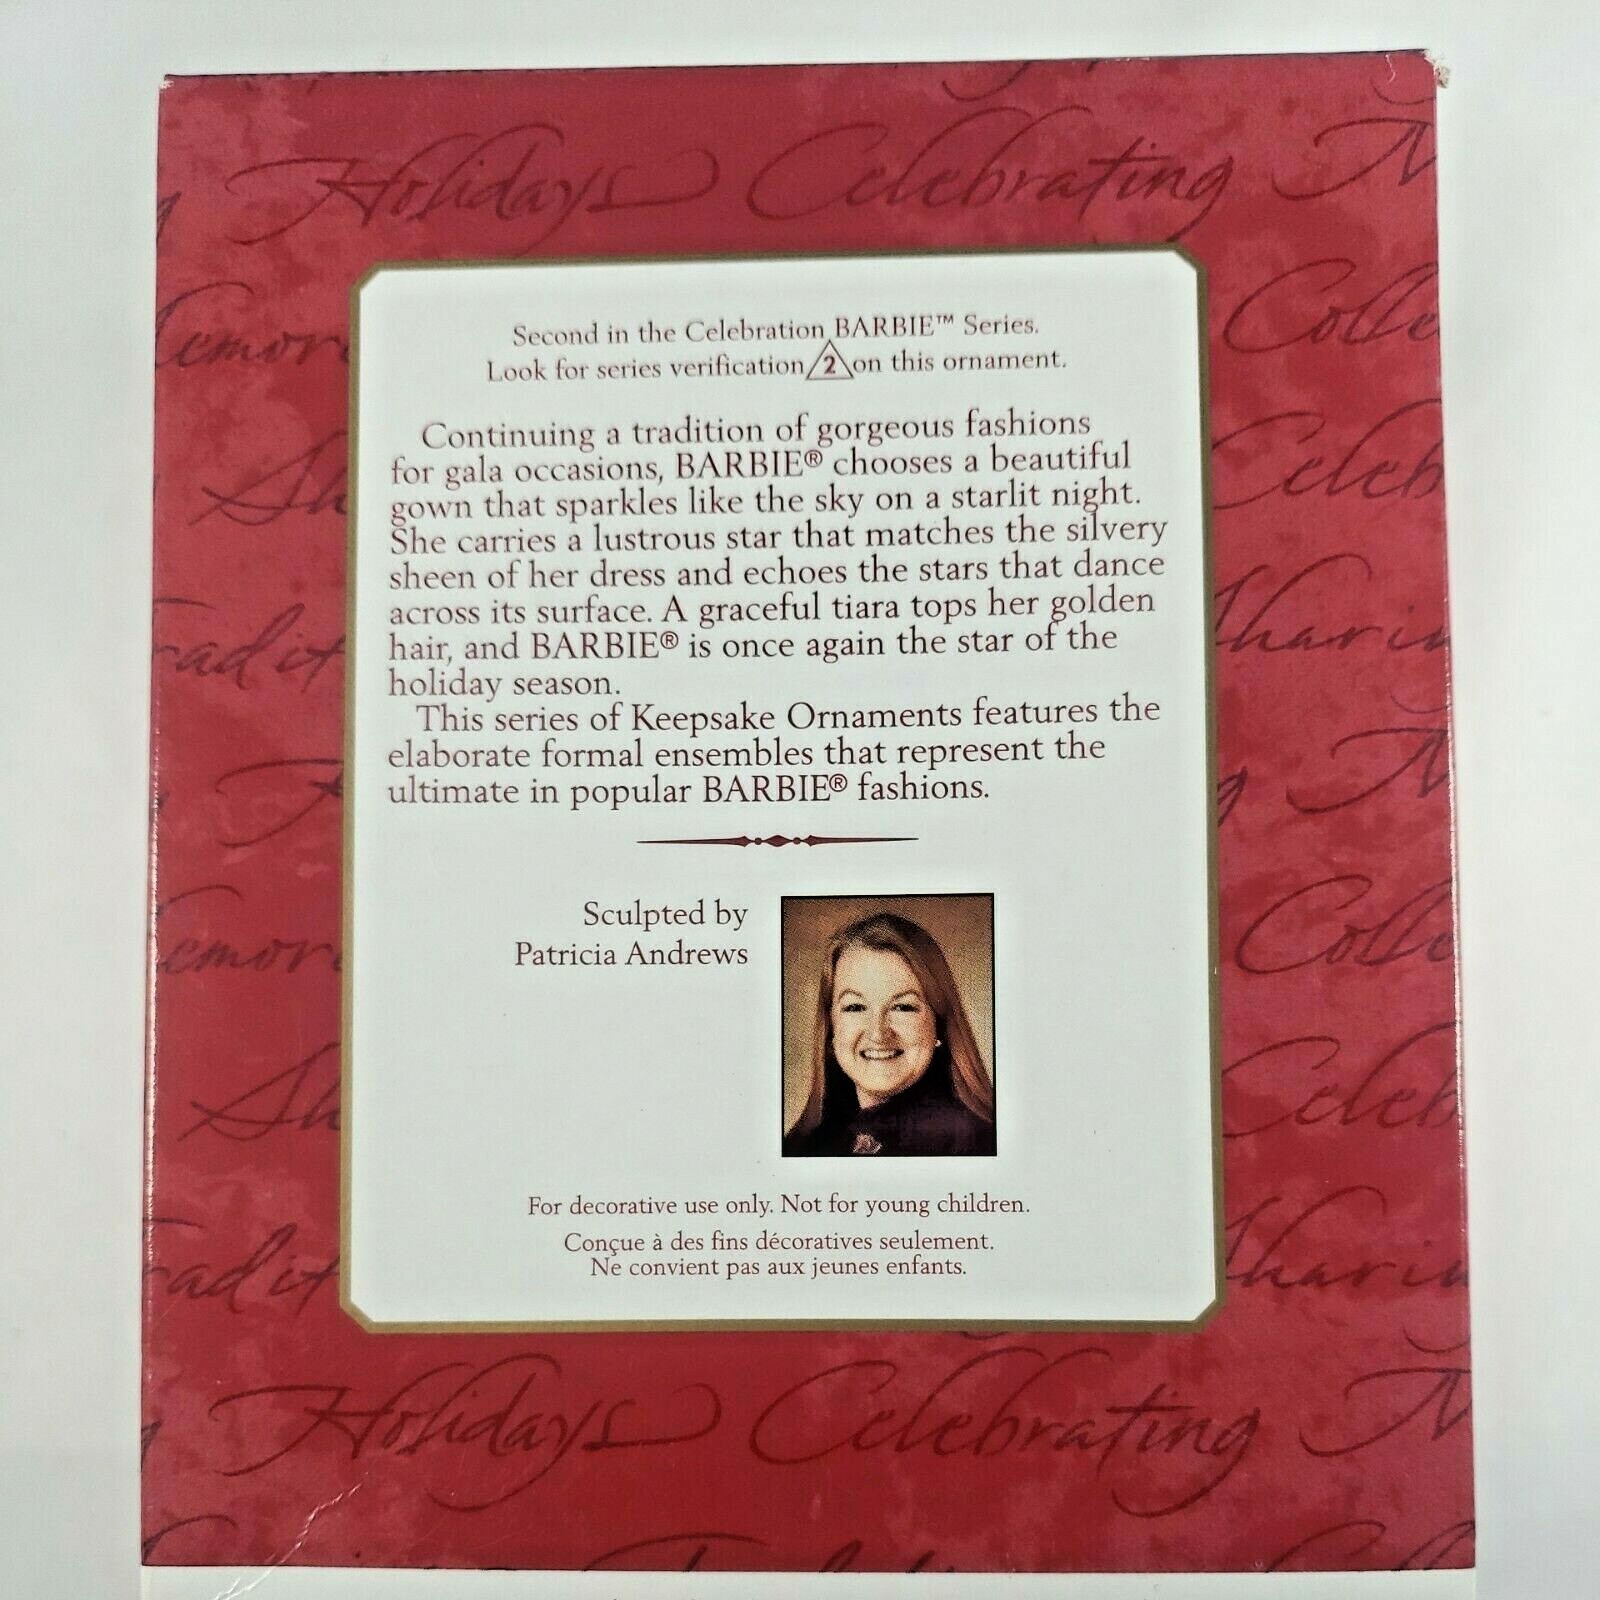 Holidays Celebrating
Second in the Celebration BARBIE™ Series.
Look for series verification 2 on this ornament.
Continuing a tradition of gorgeous fashions
for gala occasions, BARBIE® chooses a beautiful
gown that sparkles like the sky on a starlit night.
She carries a lustrous star that matches the silvery
sheen of her dress and echoes the stars that dance
across its surface. A graceful tiara tops her golden
hair, and BARBIE® is once again the star of the
holiday season.
This series of Keepsake Ornaments features the
elaborate formal ensembles that represent the
ultimate in popular BARBIE® fashions.
Sculpted by
Patricia Andrews
For decorative use only. Not for young children.
Conçue à des fins décoratives seulement.
Ne convient pas aux jeunes enfants.
Holidays Celebrating